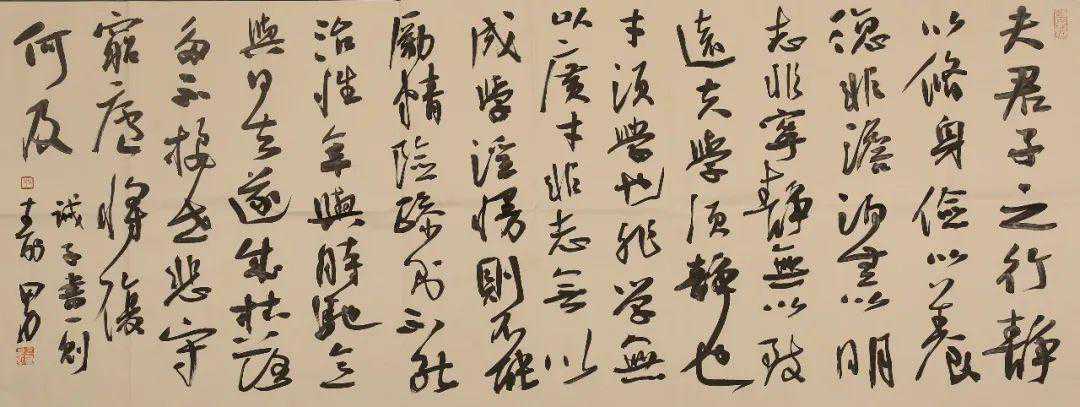 夫君子之行静
以脩身儉以養
德非澹泊無以明
志非寧静無以致
遠夫学須静也
才須學也非学無
以廣才非志无以
成学淫慢則不能
勵精險躁则不能
治性年與時馳意
與日去遂成枯落
多不接世悲守
窮廬将復
何及
诫子書一则